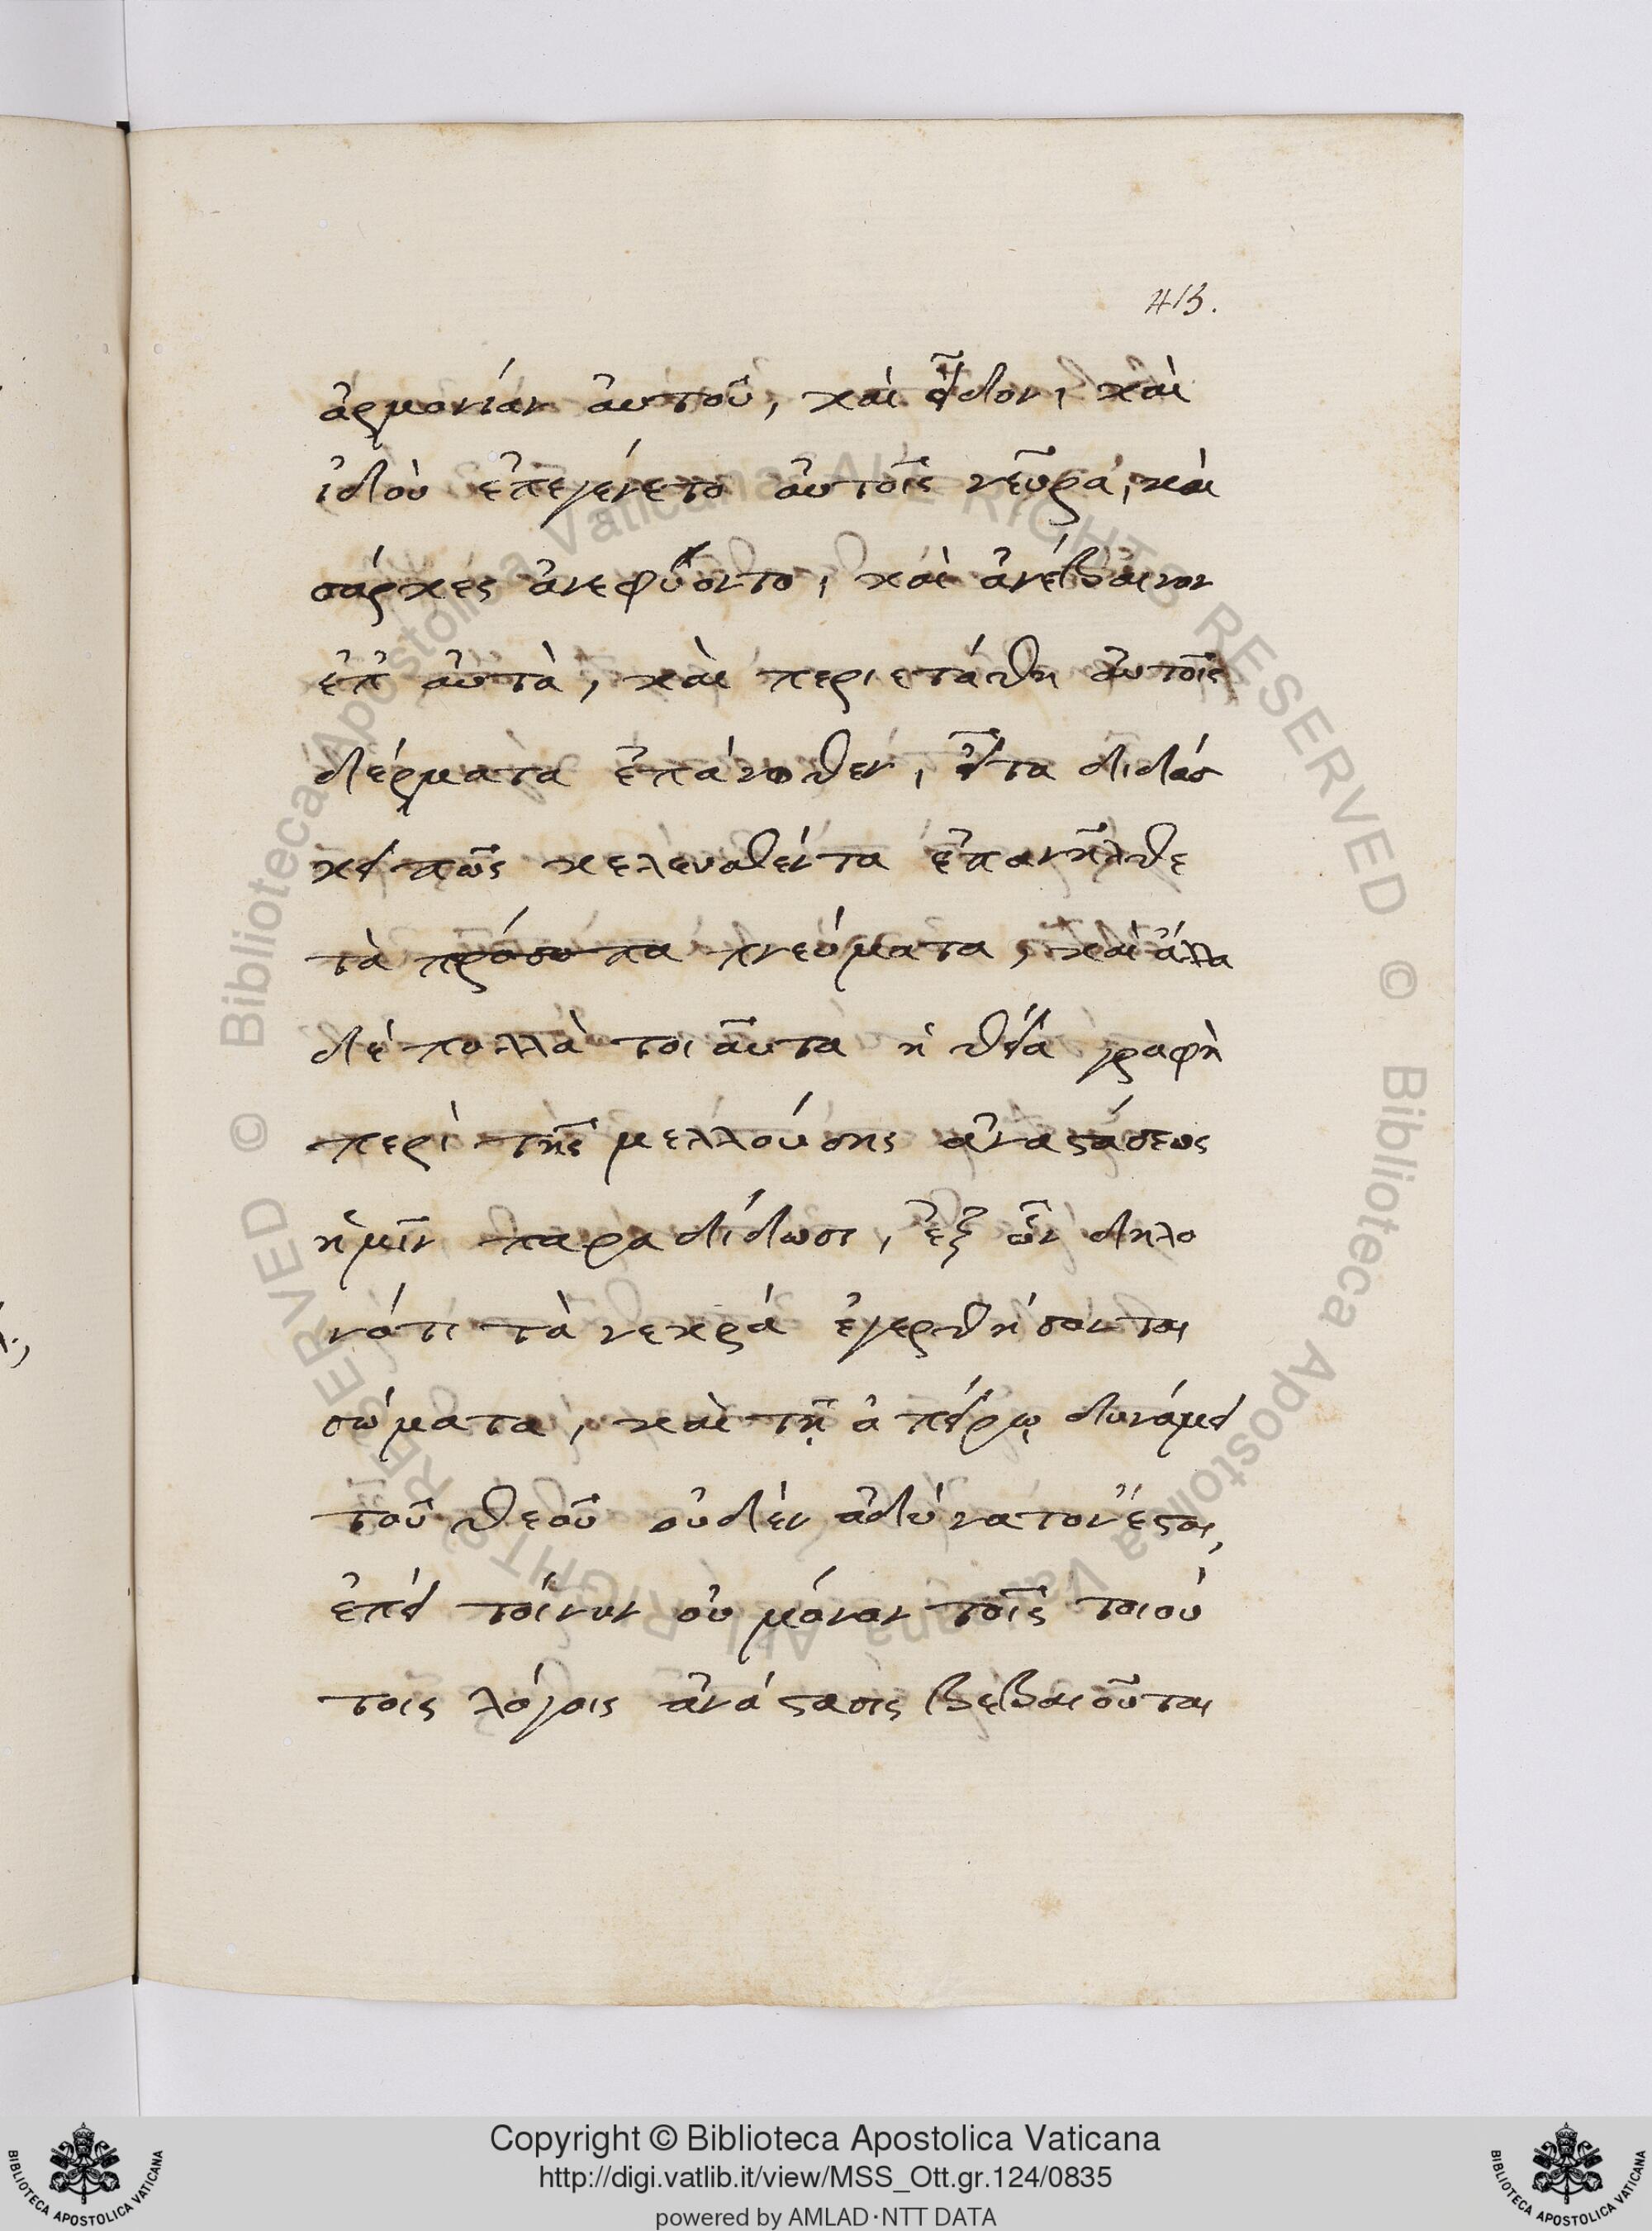 413.
ἁρμονίαν αὐτοῦ, καὶ εἶδον, καὶ
ἰδοὺ ἐπεγένετο αὐτοῖς νεῦρα, καὶ
σάρκες ἀνεφύοντο, καὶ ἀνέβαινον
ἐπ' αὐτὰ, καὶ περιετάθη αὐτοῖς
δέρματα ἐπάνωθεν, εἶτα διδάσ
κει πῶς κελευσθέντα ἐπανῆλθε
τὰ πρόσωπα πνεύματα, καὶ ἄλλα
δὲ πολλὰ τοιαῦτα ἡ θεία γραφὴ
περὶ τῆς μελλούσης ἀναστάσεως
ἡμῖν παραδίδωσι, ἐξ ὧν δηλο
νότι τὰ νεκρά ἐγερθήσονται
σώματα, καὶ τῇ ἀπείρῳ δυνάμει
τοῦ θεοῦ οὐδὲν ἀδύνατον ἔσται,
ἐπεὶ τοίνυν οὐ μόνον τοῖς τοιού
τοις λόγοις ἀνάστασις βεβαιοῦται
Copyright © Biblioteca Apostolica Vaticana
http://digi.vatlib.it/view/MSS_Ott.gr.124/0835
powered by AMLAD·NTT DATA
BIBLIOTECA APOSTOLICA VATICANA
BIBLIOTECA APOSTOLICA VATICANA
© Biblioteca Apostolica Vaticana ALL RIGHTS RESERVED
© Biblioteca Apostolica Vaticana ALL RIGHTS RESERVED